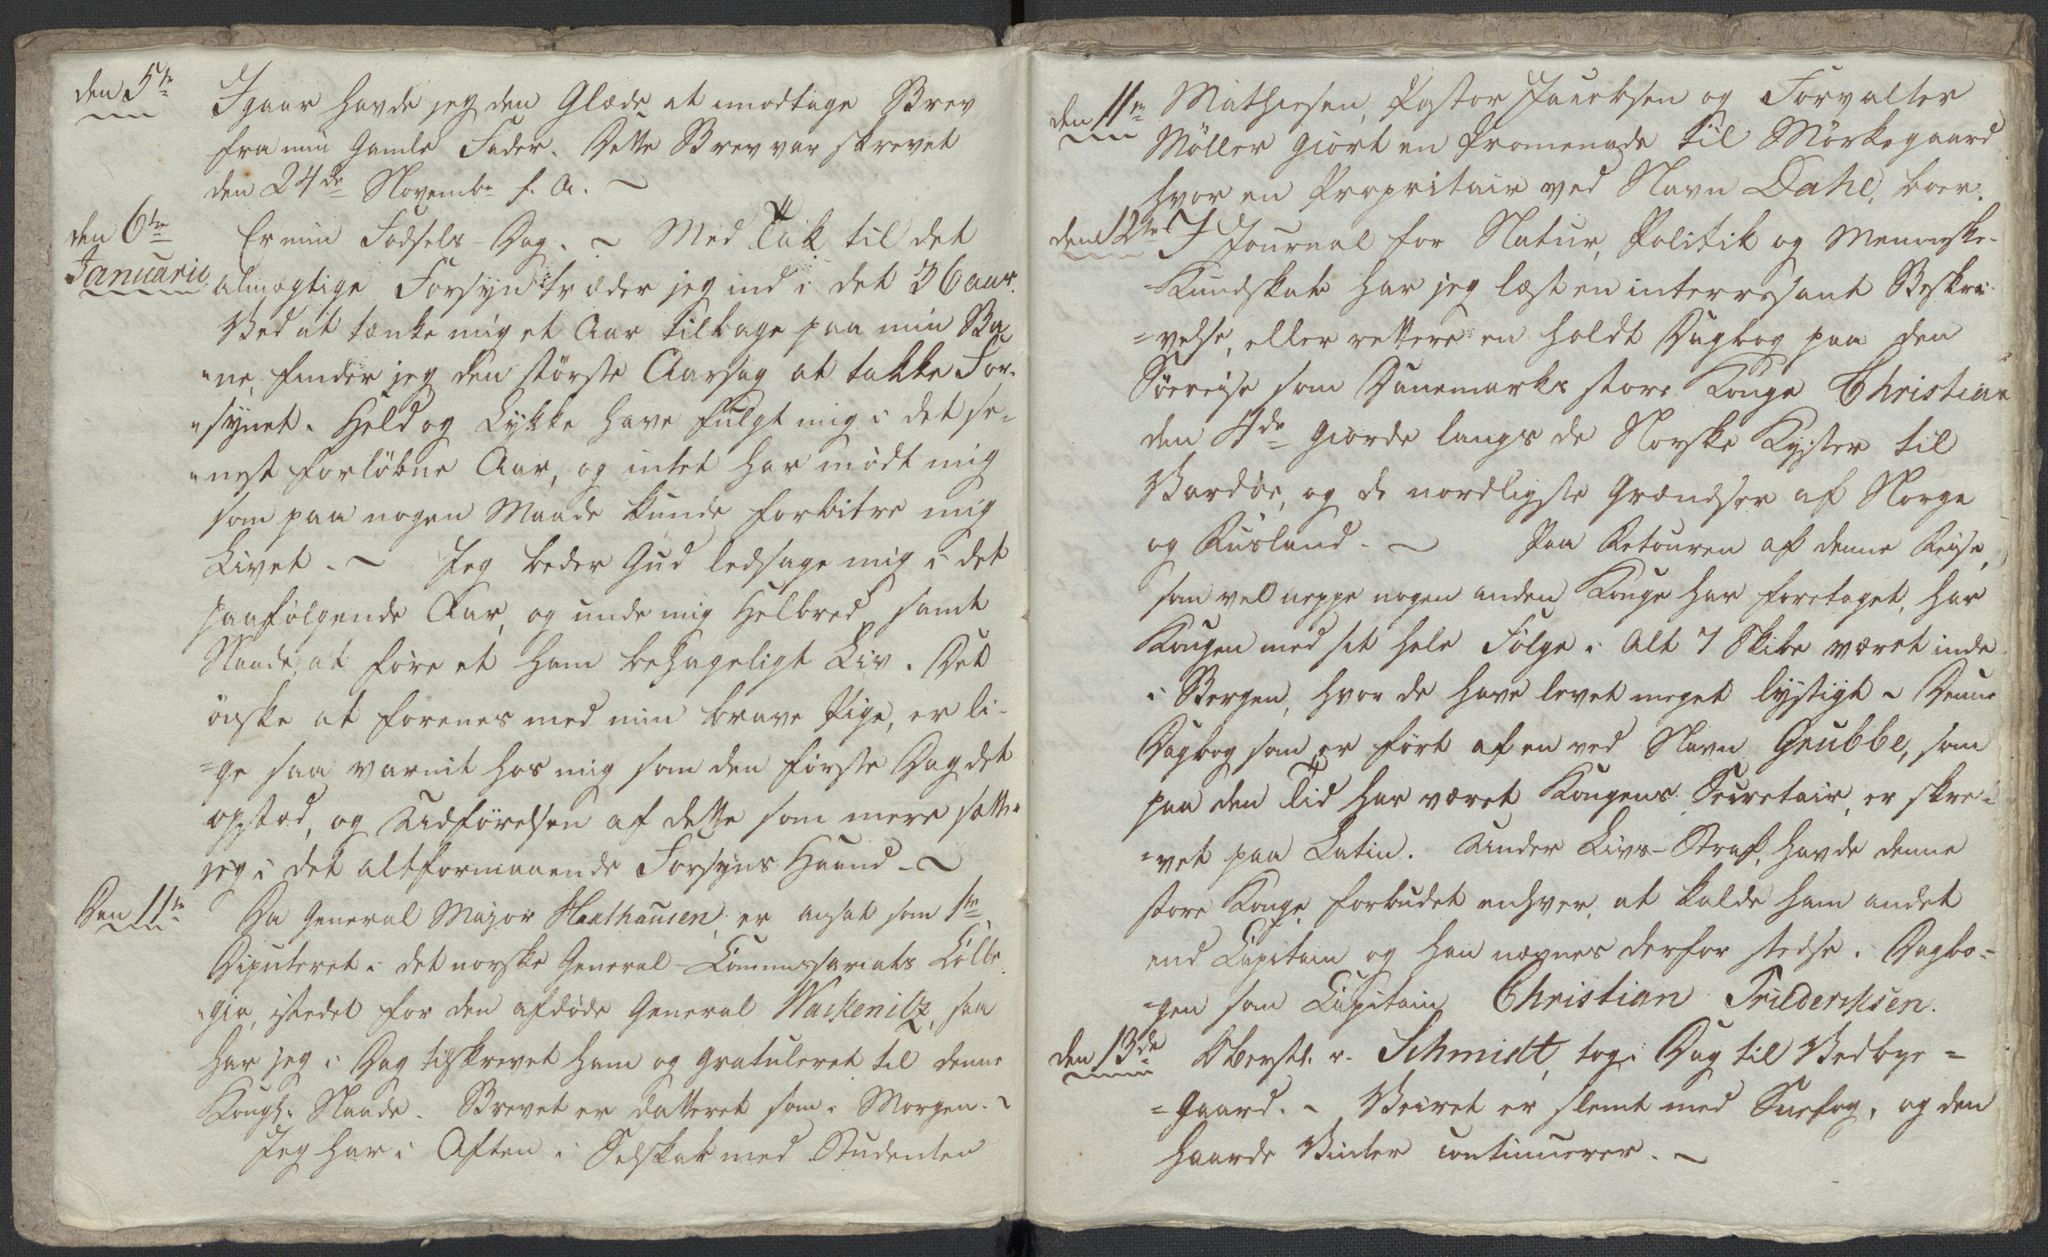 den 5te Igaar havde jeg den Glæde at imodtage Brev
fra min Gamle Fader. Dette Brev var skrevet
den 24de Novembr f. A. ~
den 6te Er min Fødsels-Dag. ~ Med Tak til det
Januarii almægtige Forsyn træder jeg ind i det 36 aar.
Ved at tænke mig et Aar tilbage paa min Ba-
"ne, finder jeg den største Aarsag at takke For-
"synet. Held og Lykke have fulgt mig i det se-
"nest forløbne Aar, og intet har mødt mig
som paa nogen Maade kunde forbitre mig
Livet. ~ Jeg beder Gud ledsage mig i det
paafølgende Aar, og unde mig Helbred samt
Naade, at føre et ham behageligt Liv. Det
ønske at forenes med min brave Pige, er li-
=ge saa varmt hos mig som den første Dag det
opstod, og Udførelsen af dette som mere sætter
jeg i det altformaaende Forsyns Haand. ~
Den 11te Da General Major Haxthausen er ansat som 1te
Deputeret i det norske General-Commissariats Colle-
"gio, istedet for den afdøde General Wackenitz, saa
har jeg i Dag tilskrevet ham og gratuleret til denne
Kongl. Naade. Brevet er datteret som i Morgen. ~
Jeg har i Aften i Selskab med Studenten
den 11te Mathiesen, Pastor Jacobsen og Forvalter
Møller giort en Promenade til Mørkegaard
hvor en Propritair ved Navn Dahl, boer.
den 12te I Journal for Natur, Politik og Menneske-
Kundskab har jeg læst en interressant Beskri-
=velse, eller rettere en holdt Dagbog paa den
Søereise som Danemarks store Konge Christian
den 4de giorde langs de Norske Kyster til
Vardøe, og de nordligste Grændser af Norge
og Rusland. ~ Paa Retouren af denne Reise,
som vel neppe nogen anden Konge har foretaget, har
Kongen med sit hele Følge i Alt 7 Skibe været inde
i Bergen, hvor de have levet meget lystigt ~ Denne
Dagbog som er ført af en ved Navn Grubbe, som
paa den Tid har været Kongens Secretair, er skre-
"vet paa Latin. Under Livs-Straf, havde denne
store Konge forbudet enhver, at kalde ham andet
end Capitain og han nævnes derfor stedse i Dagbo-
=gen som Capitain Christian Friderichsen.
den 13de Oberstl. v. Schmidt, tog i Dag til Vedbye-
=Gaard. ~ Veiret er slemt med Sneefog, og den
haarde Vinter continuerer. ~